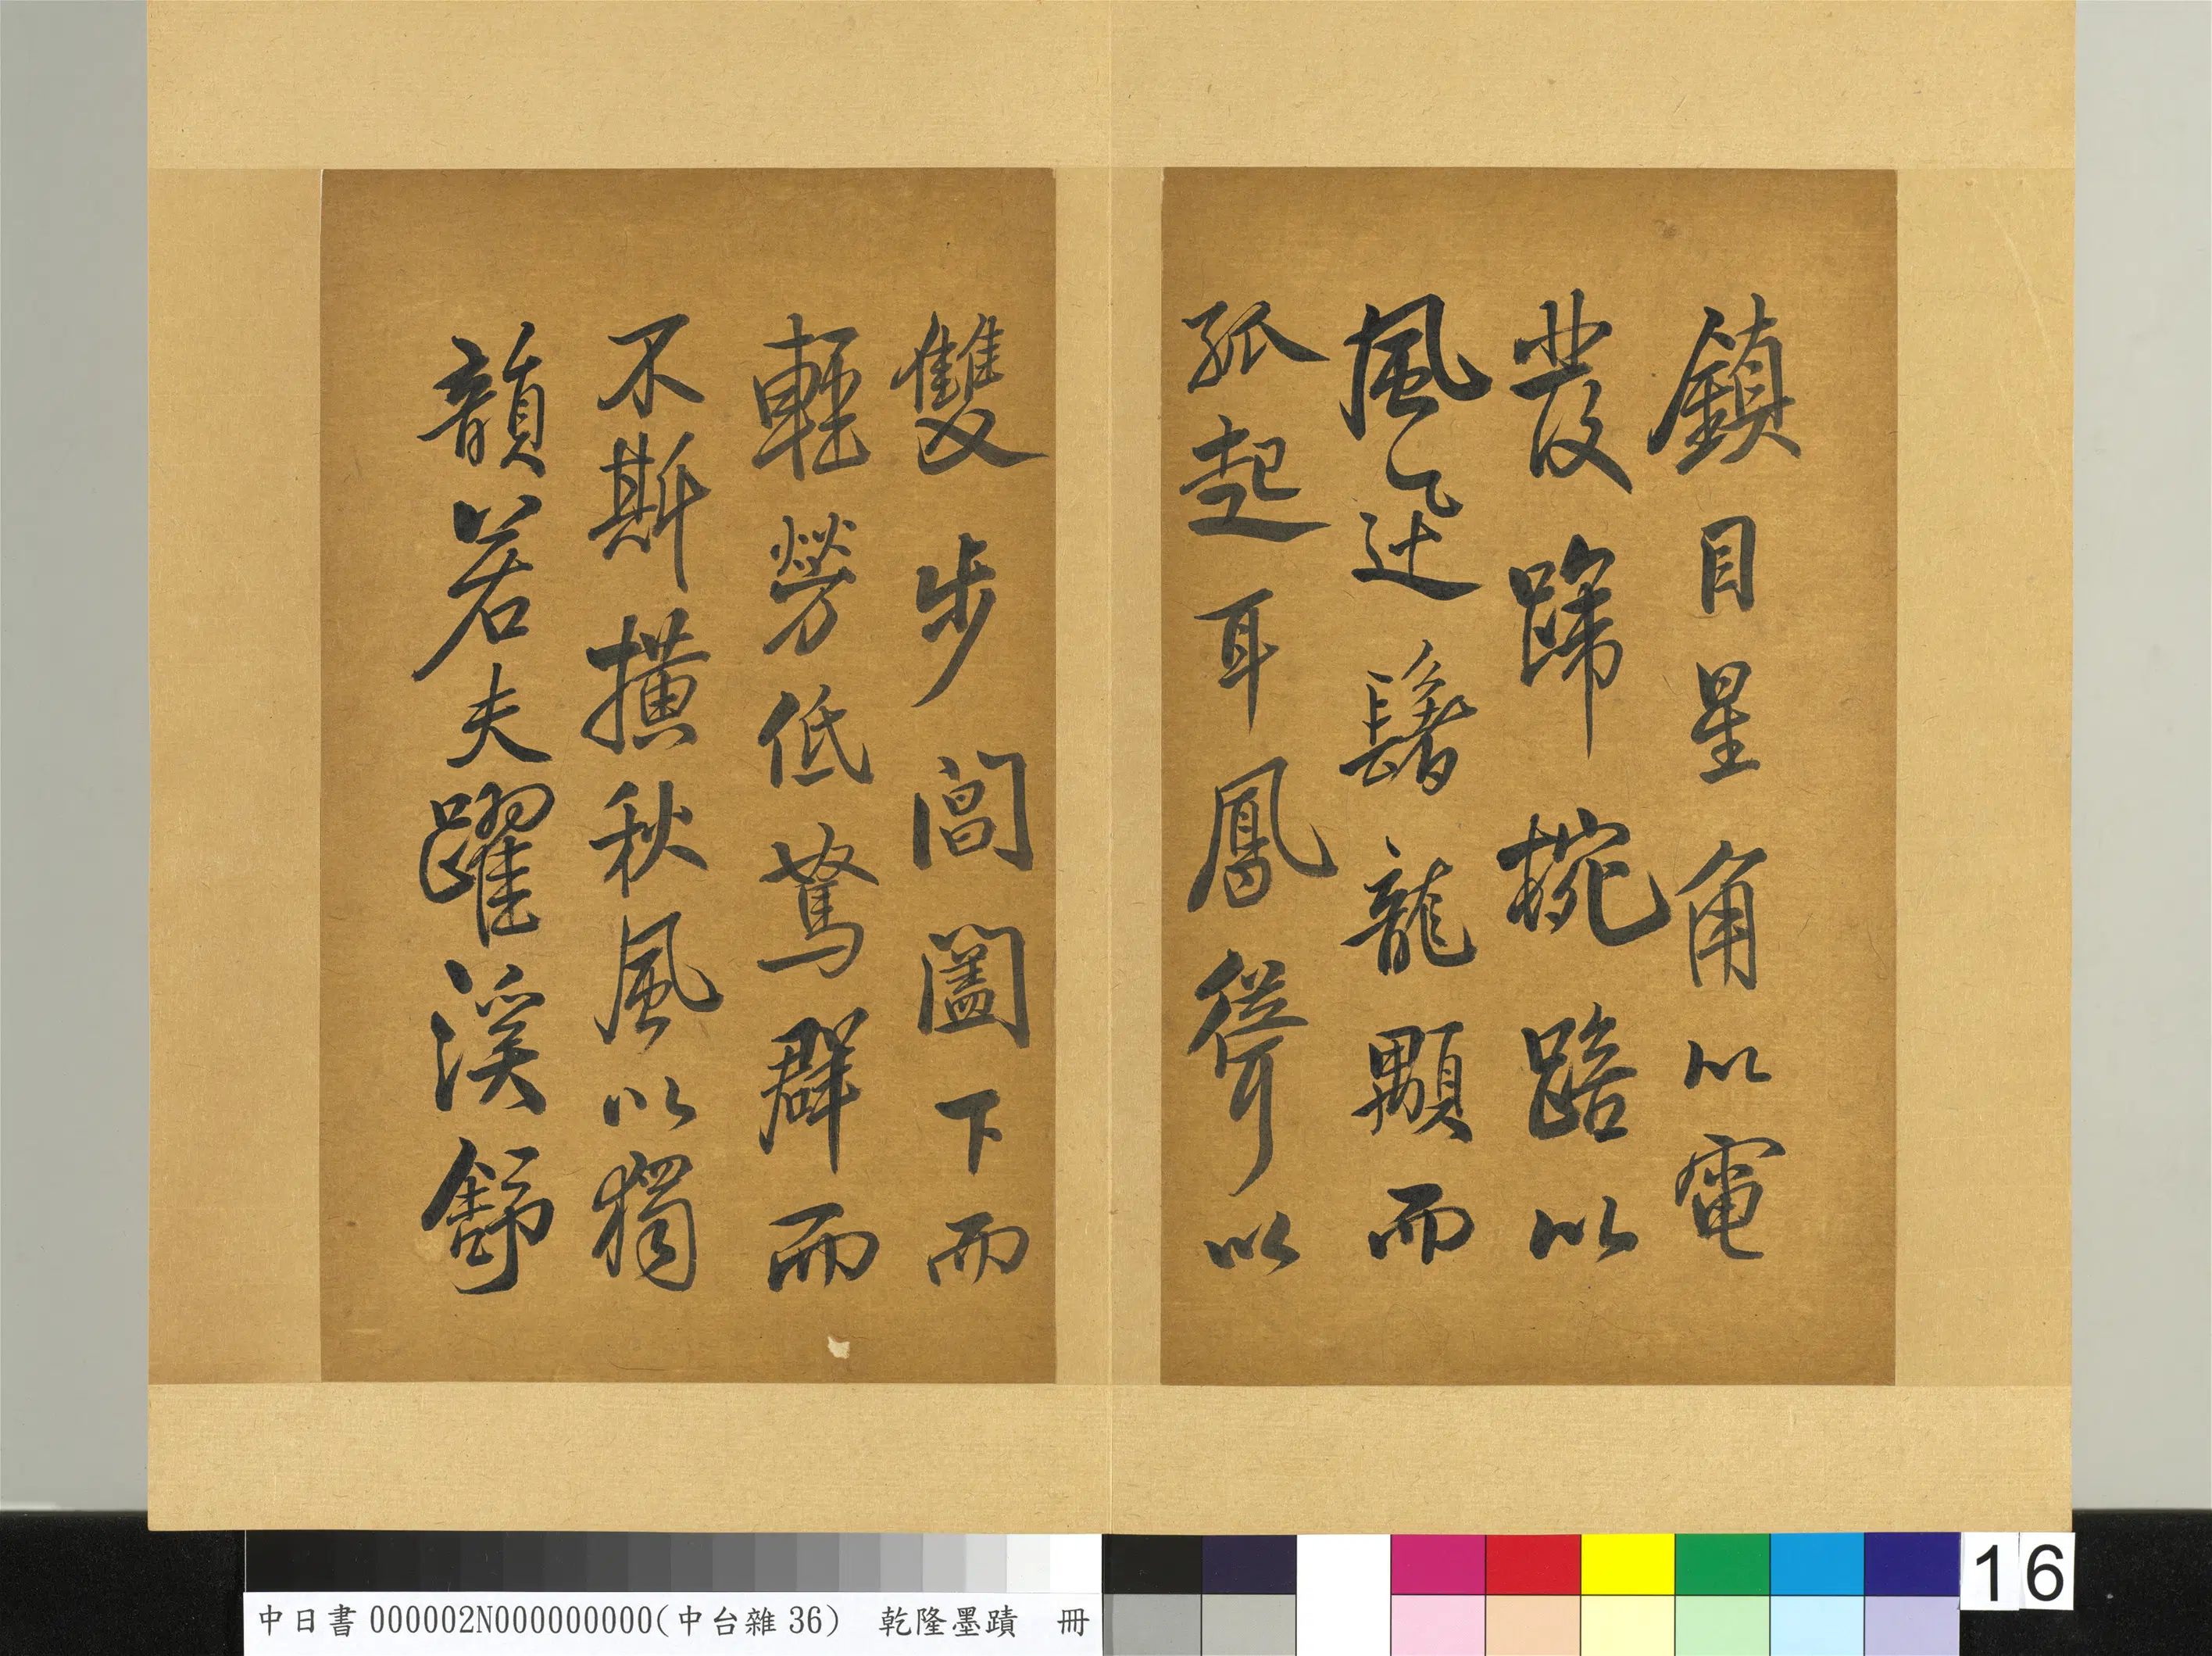 鎮目星角以電
發蹄椀踣以
風迅鬐龍顒而
孤起耳鳳聳以
雙步閶闔下而
輕勞低駑群而
不斯橫秋風以獨
韻若夫躍溪舒
中日書000002N000000000(中台雜36) 乾隆墨蹟 冊
16